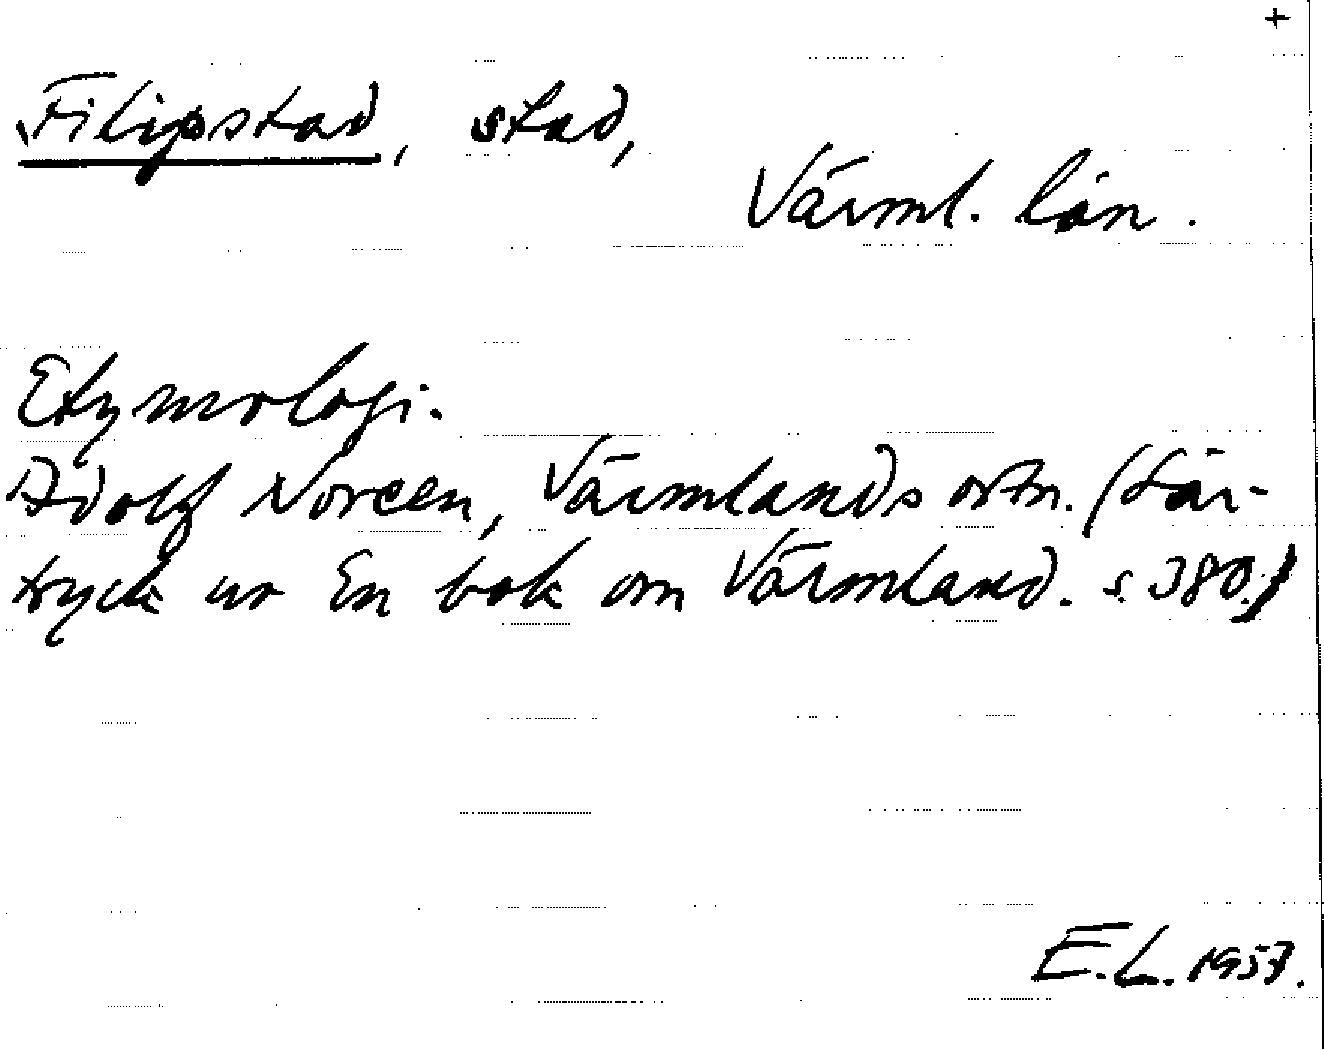 +
Filipstad, stad,
Värml. län.
Etymologi.
Adolf Noreen, Värmlands ortn. (Sär-
tryck ur En bok om Värmland. s. 380.)
E.L. 1957.